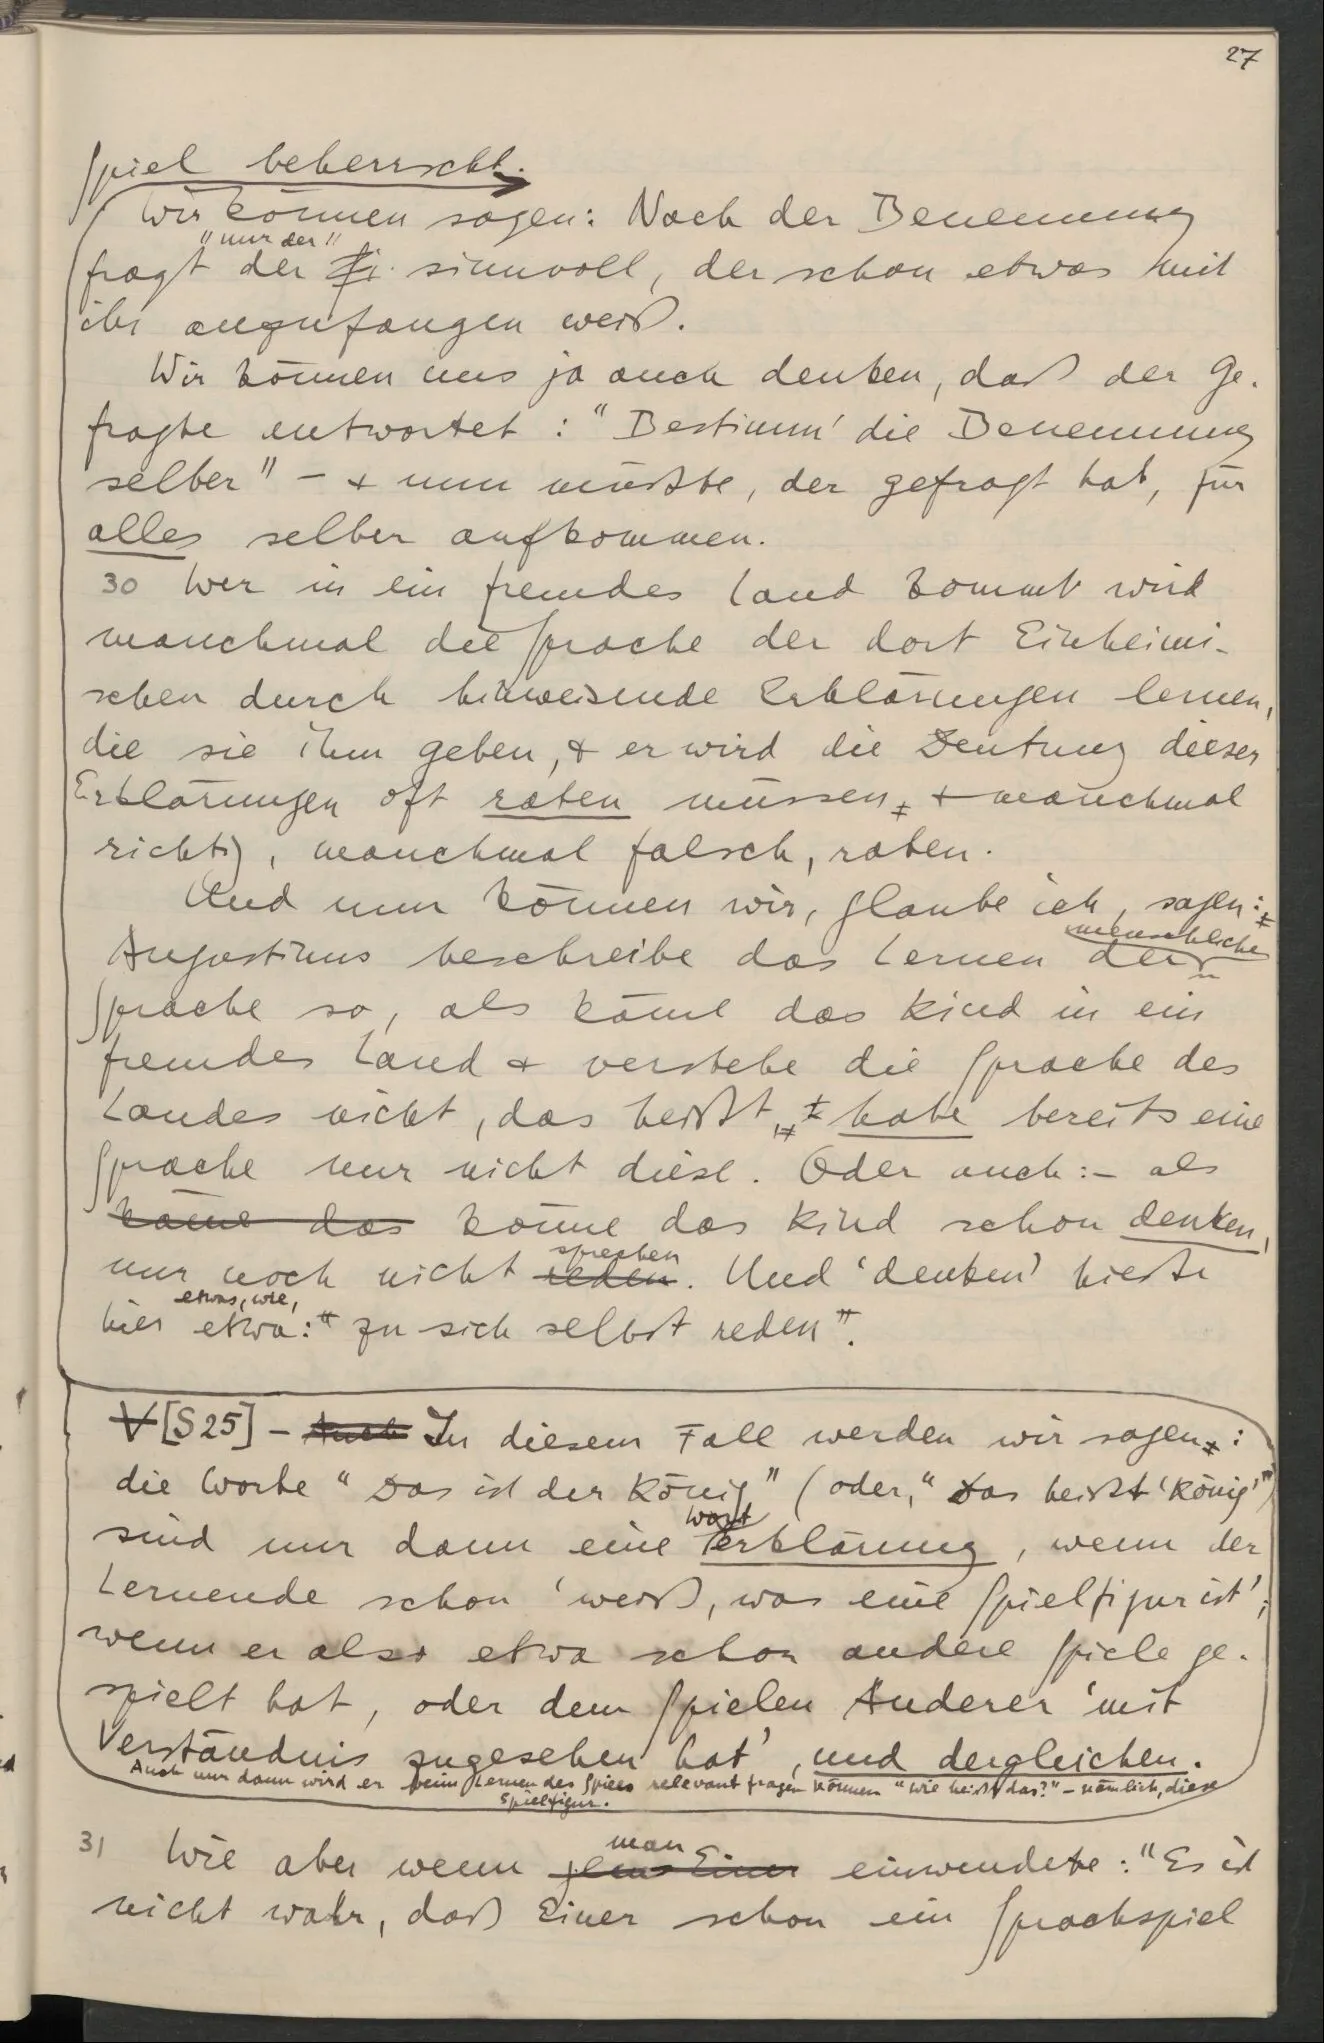 27
Spiel beherrscht.
Wir können sagen: Nach der Benennung
"nur der"
fragt der sinnvoll, der schon etwas mit
ihr anzufangen weiß.
Wir können uns ja auch denken, daß der Ge-
fragte antwortet: "Bestimm' die Benennung
selber" – & nun müßte, der gefragt hat, für
alles selber aufkommen.
30 Wer in ein fremdes Land kommt wird
manchmal die Sprache der dort Einheimi-
schen durch hinweisende Erklärungen lernen,
die sie ihm geben, & er wird die Deutung dieser
Erklärungen oft raten müssen, & manchmal
richtig, manchmal falsch, raten.
Und nun können wir, glaube ich, sagen:
menschlichen
Augustinus beschreibe das Lernen der
Sprache so, als käme das Kind in ein
fremdes Land & verstehe die Sprache des
Landes nicht, das heißt, habe bereits eine
Sprache nur nicht diese. Oder auch: – als
käme das könne das Kind schon denken,
sprechen
nur noch nicht reden. Und 'denken' hieße
etwas, wie,
hier etwa: "zu sich selbst reden".
V [S 25] – Auch In diesem Fall werden wir sagen:
die Worte "Das ist der König" (oder, "Das heißt 'König'")
Wort
sind nur dann eine Erklärung, wenn der
Lernende schon 'weiß, was eine Spielfigur ist';
wenn er also etwa schon andere Spiele ge-
spielt hat, oder dem Spielen Anderer 'mit
Verständnis zugesehen hat', und dergleichen.
Auch nur dann wird er beim Lernen des Spiels relevant fragen können "wie heißt das?" – nämlich, diese
Spielfigur.
man
31 Wie aber wenn Einer einwendete: "Es ist
nicht wahr, daß Einer schon ein Sprachspiel